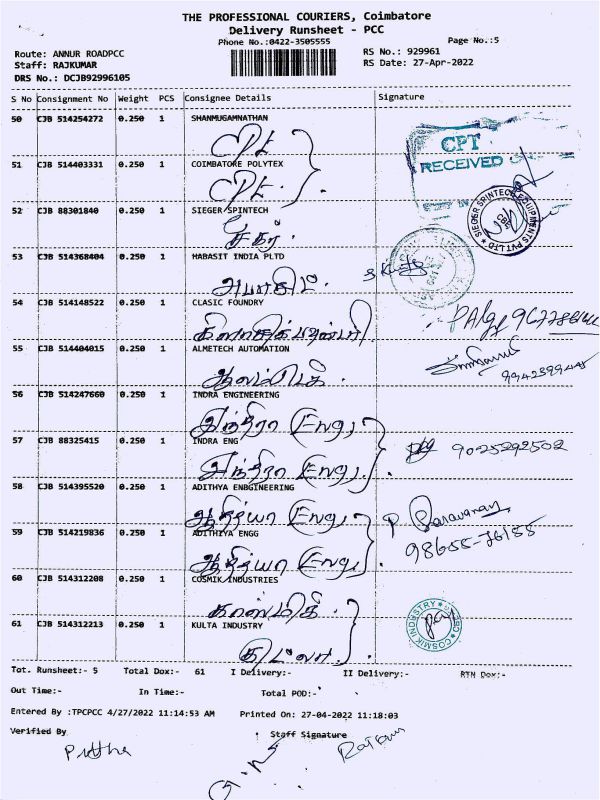 THE PROFESSIONAL COURIERS, Coimbatore
Delivery Runsheet - PCC
Phone No.:0422-3505555
Page No.:5
Route: ANNUR ROADPCC
RS No.: 929961
Staff: RAJKUMAR
RS Date: 27-Apr-2022
DRS No.: DCJB92996105
S No Consignment No Weight PCS Consignee Details Signature
50 CJB 514254272 0.250 1 SHANMUGAMNATHAN
CPT RECEIVED
51 CJB 514403331 0.250 1 COIMBATORE POLYTEX
52 CJB 88301840 0.250 1 SIEGER SPINTECH
SIEGER SPINTECH EQUIPMENTS PVT LTD
53 CJB 514368404 0.250 1 HABASIT INDIA PLTD
54 CJB 514148522 0.250 1 CLASIC FOUNDRY
55 CJB 514404015 0.250 1 ALMETECH AUTOMATION
56 CJB 514247660 0.250 1 INDRA ENGINEERING
இந்திரா (Eng)
57 CJB 88325415 0.250 1 INDRA ENG
9025292502
இந்திரா (Eng)
58 CJB 514395520 0.250 1 ADITHYA ENBGINEERING
ஆதித்யா (Eng)
P Saravanan
59 CJB 514219836 0.250 1 ADITHIYA ENGG
98655-76155
ஆதித்யா (Eng)
60 CJB 514312208 0.250 1 COSMIK INDUSTRIES
COSMIK INDUSTRY
61 CJB 514312213 0.250 1 KULTA INDUSTRY
Tot. Runsheet:- 5 Total Dox:- 61 I Delivery:- II Delivery:- RTN Dox:-
Out Time:- In Time:- Total POD:-
Entered By :TPCPCC 4/27/2022 11:14:53 AM Printed On: 27-04-2022 11:18:03
Verified By Staff Signature